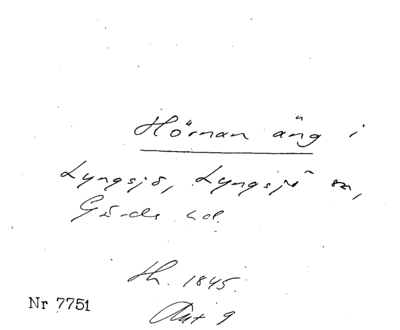 Hörnan äng i
Lyngsjö, Lyngsjö sn,
Gärds hd.
Hh. 1845.
Nr 7751
Akt 9